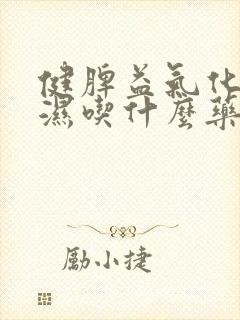 健脾益氣化
濕喫什麼藥
勵小捷